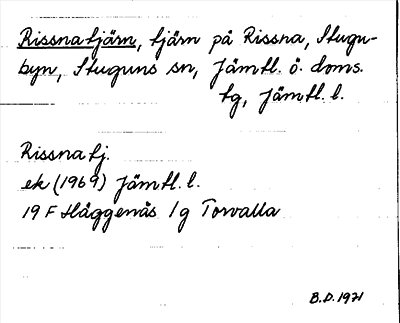 Rissnatjärn, tjärn på Rissna, Stugu-
byn, Stuguns sn, Jämtl. ö. doms.
tg, Jämtl. l.
Rissnatj.
ek (1969) Jämtl. l.
19 F Häggenås 1g Torvalla
B.D. 1971